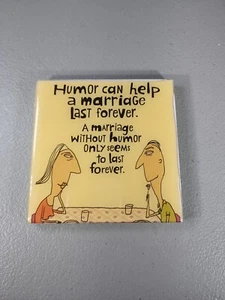 Humor can help
a marriage
last forever.
A marriage
without humor
only seems
to last
forever.